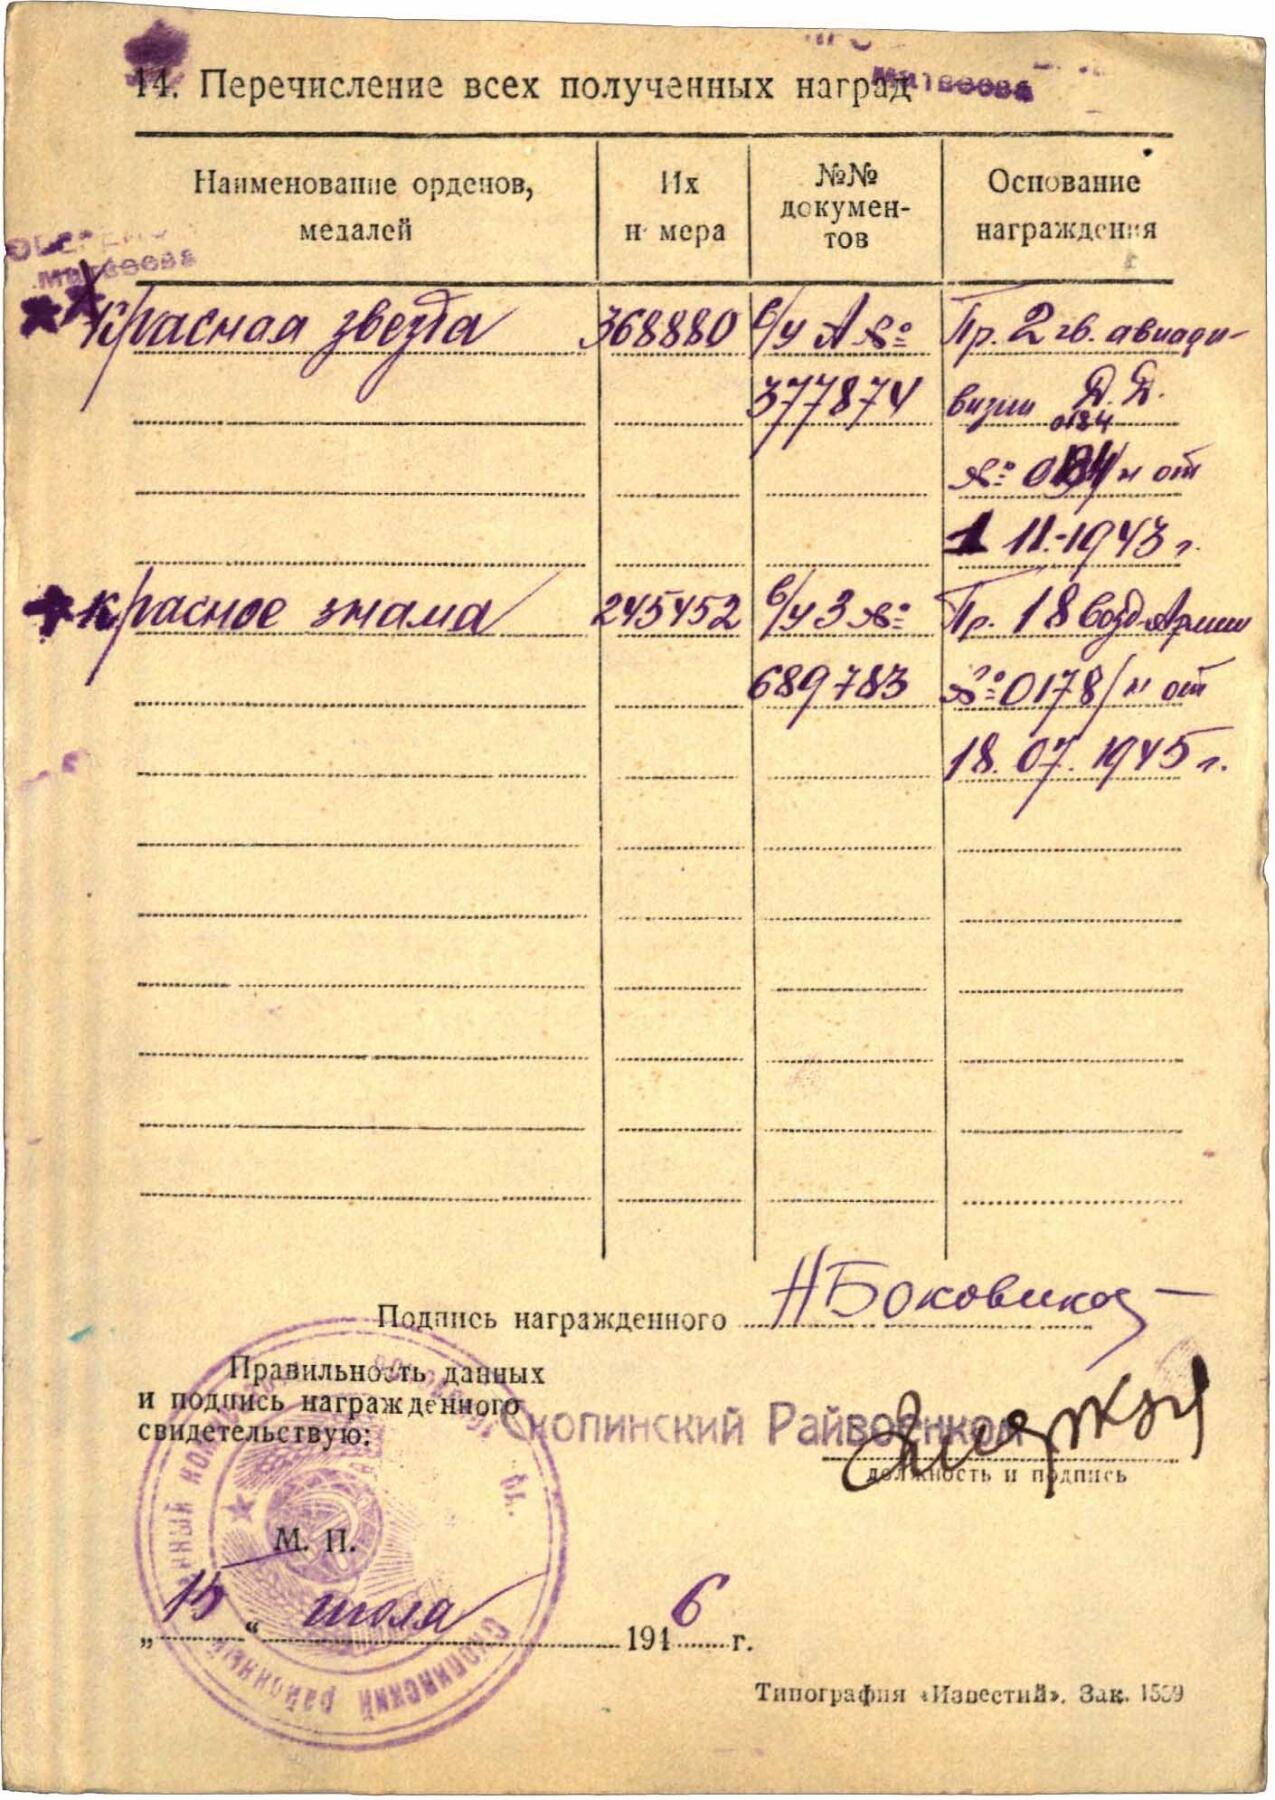 14. Перечисление всех полученных наград
Матвеева
Наименование орденов, медалей
Их н мера
№№ докумен-тов
Основание награждения
Матвеева
Красная звезда 368880 в/у А № Пр. 2 гв. авиади-
377874 визии Д.Д.
0184
№ 0184/н от
1 11.-1943 г.
Красное знамя 245452 в/у З № Пр. 18 возд. Армии
689783 № 0178/н от
18.07.1945 г.
Подпись награжденного Н Боковиков
Правильность данных
и подпись награжденного
свидетельствую:
Скопинский Райвоенком
должность и подпись
М. П.
„15“ июля 1946 г.
Скопинский районный
Типография «Известий». Зак. 1559